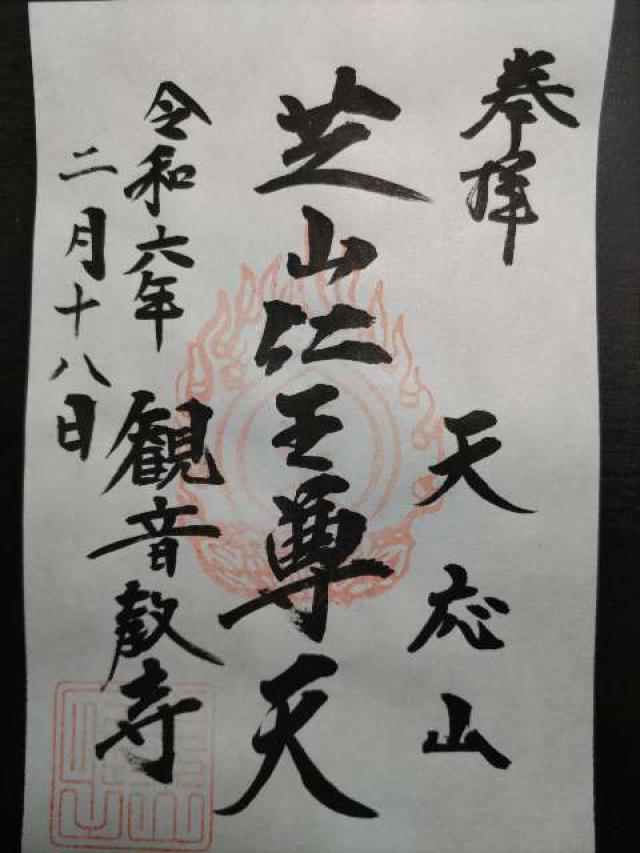 奉拝
天応山
芝山仁王尊天
令和六年
二月十八日
観音教寺